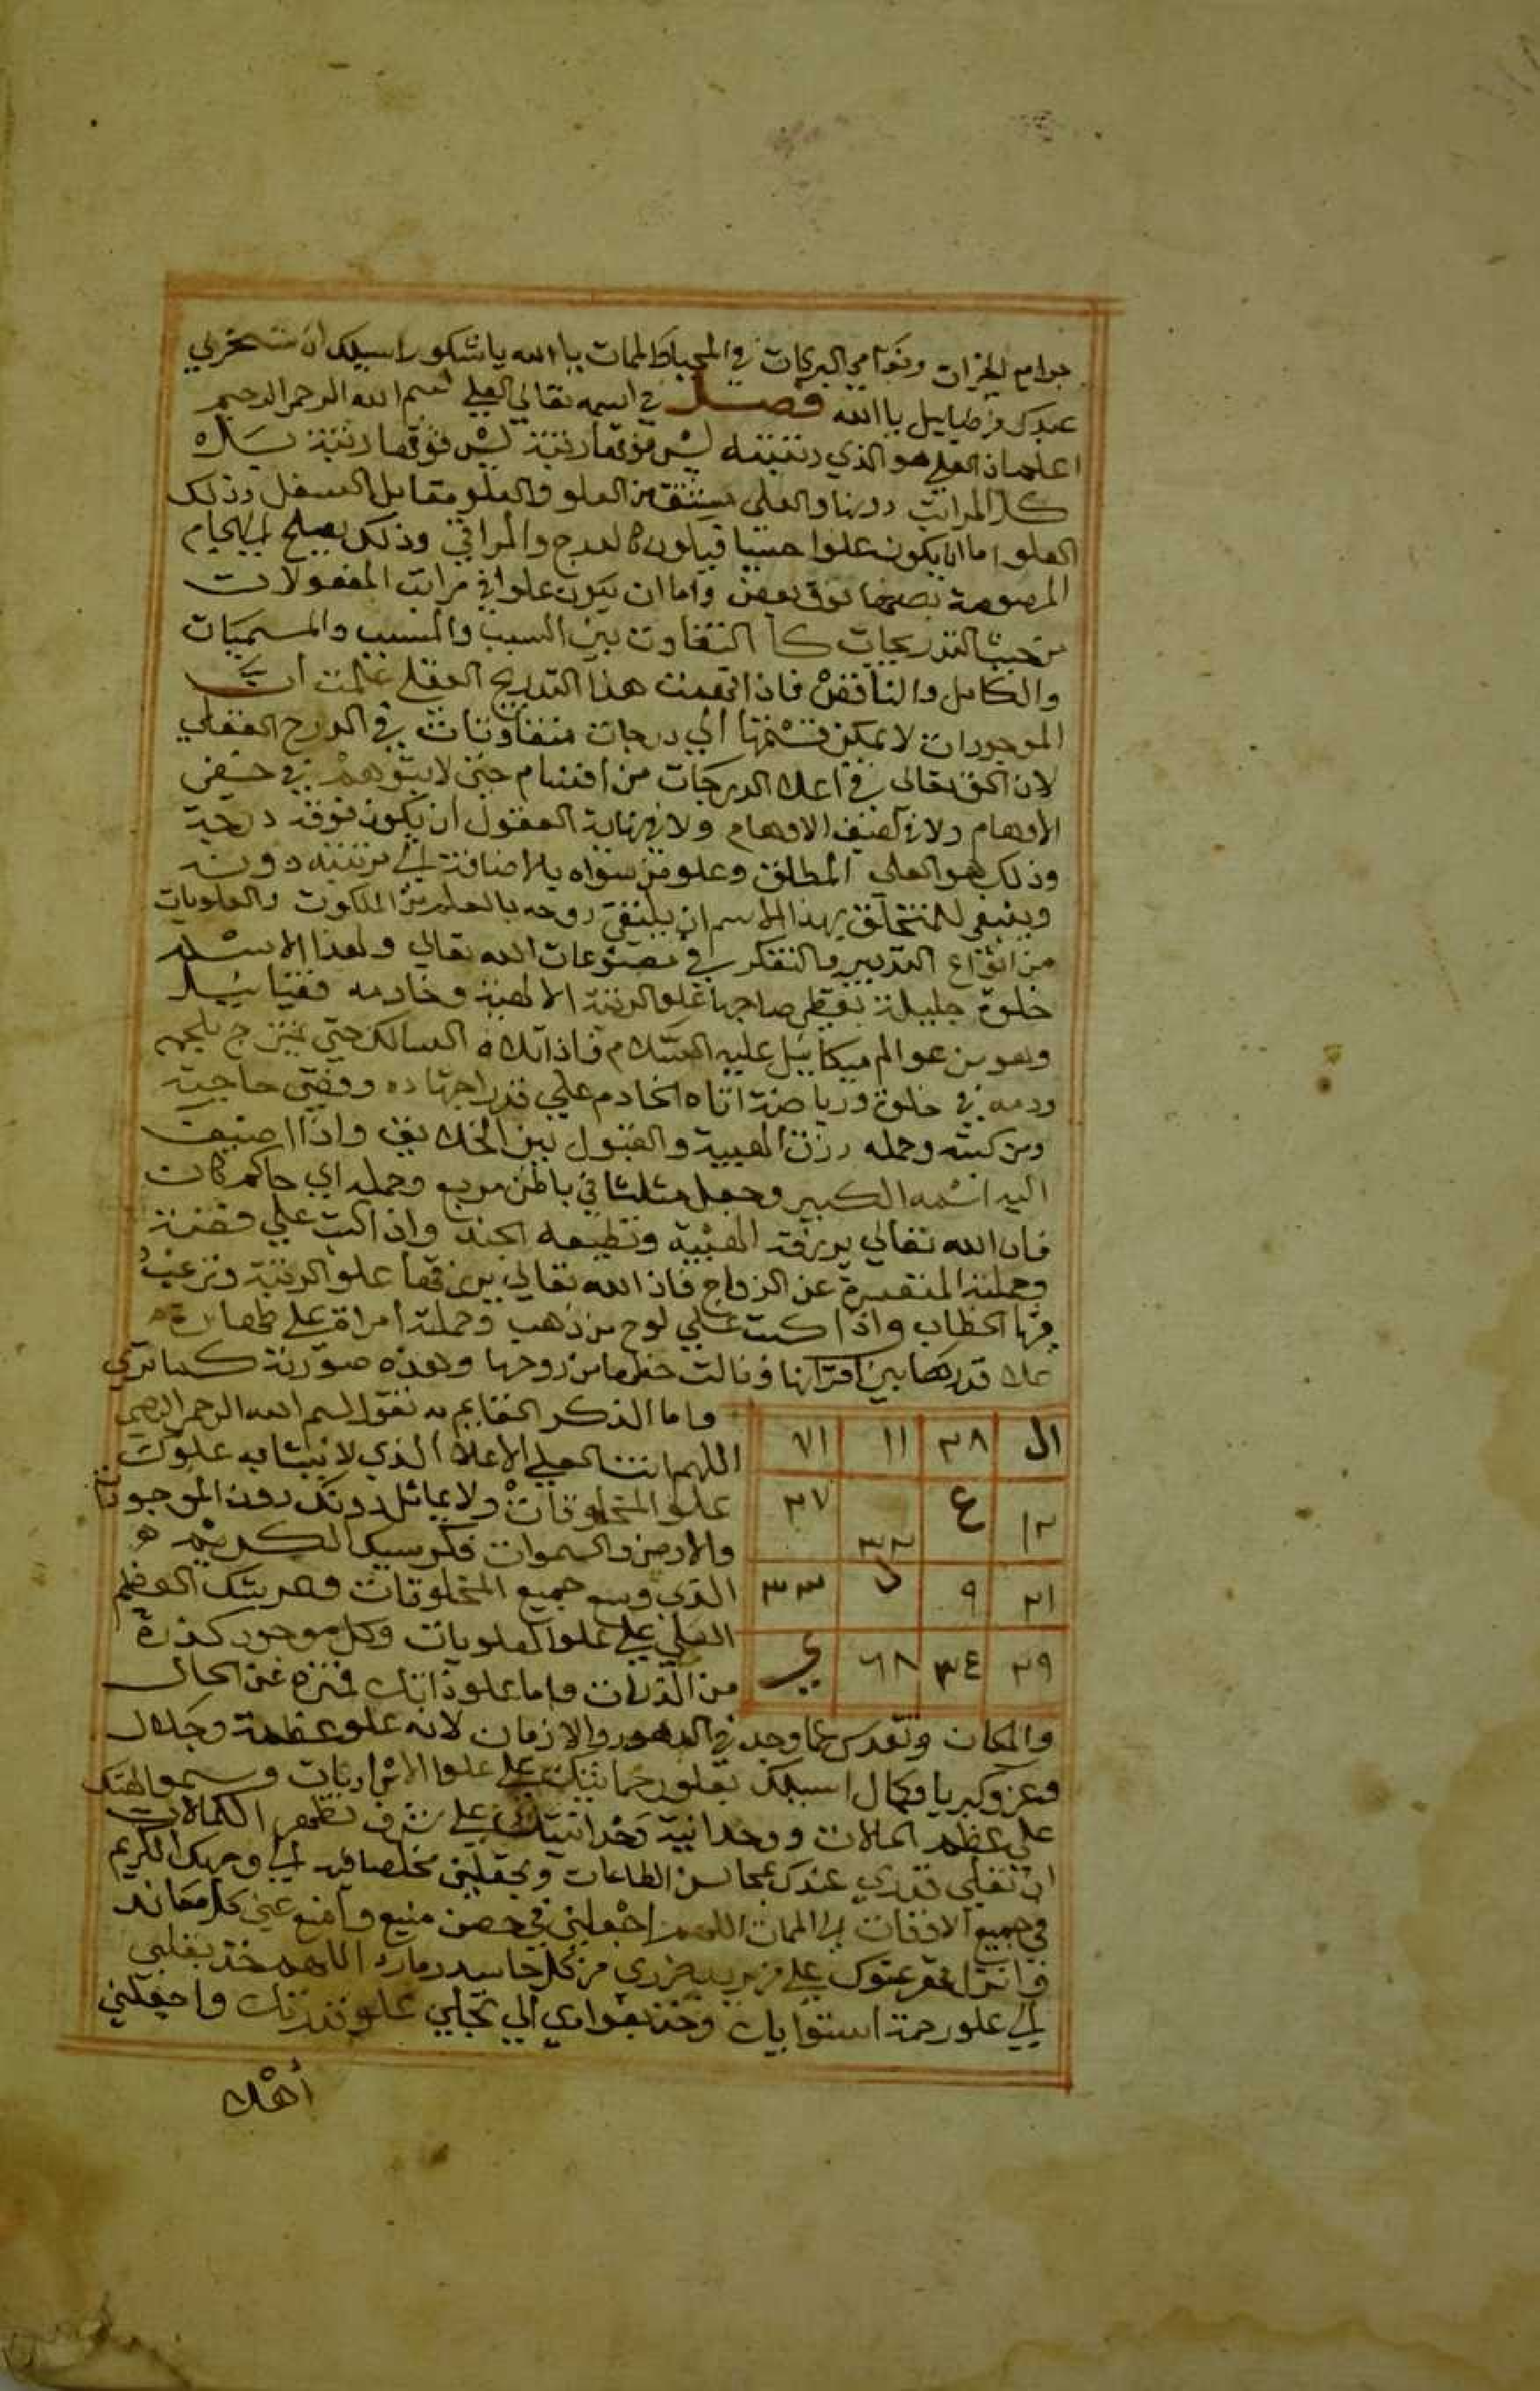 جوامع الخيرات ونوامي البركات في المحيا والممات يا الله يا شكور اسيلك ان تسخر لي
عبدك يا الله فصل في اسمه تعالي العلي بسم الله الرحمن الرحيم
اعلم ان العلي هو الذي رتبته ليس فوقها رتبة ليس فوقها رتبة
كل المراتب دونها والعلي مشتق من العلو والعلو مقابل السفل وذلك
العلو اما ان يكون علوا حسيا فيكون كالدرج والمراقي وذلك
بعضها فوق بعض واما ان يكون علوا في مراتب المعقولات
من حيث التدريجات كا التفاوت بين السبب والمسبب والمسميات
والكامل والناقص فاذا هذا التدريج العقلي علمت ان
الموجودات لا يمكن قسمتها الي درجات متفاوتات في الدرج العقلي
لان الحق تعالي في اعلا الدرجات من اقسام حتي لا يتوهم في
الاوهام ولا في الاوهام ولا في نهاية العقول ان يكون فوقه درجة
وذلك هو العلي المطلق وعلو من سواه بالاضافة الي مرتبته دونه
وينبغي للمتخلق بهذا الاسم ان روحه بالعلم من الملكوت والعلويات
من انواع التدبير والتفكر في مصنوعات الله تعالي ولهذا الاسم
خلوة جليلة يعطي صاحبها علو الرتبة الالهية وخادمه
وهو من عوالم ميكاييل عليه السلام فاذا تلاه السالك حتي يمتزج بلحمه
ودمه في خلوة ورياضة اتاه الخادم علي قدر اجتهاده وقضي حاجته
ومن كتبه وحمله رزق الهيبة والقبول بين الخلايق واذا اضيف
اليه اسمه الكبير وجعل مثلثا في باطن مربع وحمله اي حاكم كان
فان الله تعالي يرزقه الهيبة وتطيعه الجند واذا كتب علي فضة
وحملته المتعسرة عن الزواج فاذ الله تعالي يرزقها علو الرتبة وترغب
فيها الخطاب واذا كتب علي لوح من ذهب وحملته امراة علي طهارة
علا قدرها بين اقرانها ونالت حظها من زوجها وهذه صورته كما تري
واما الذكر القايم به تقول بسم الله الرحمن الرحيم
اللهم انت العلي الاعلا الذي لا يشابه علوك
علو المخلوقات ولا يماثل دونك دون الموجودات
والارض والسموات فكرسيك الكريم
الذي وسع جميع المخلوقات وعرشك العظيم
العلي علي علو العلويات وكل موجود كذرة
من الذرات واما علو ذاتك فمنزه عن الحال
ال ٣٨ ١١ ٧١
١٢ ع ٣٢ ٣٧
٣١ ٩ ل ٣٣
٣٩ ٣٤ ٦٨ ي
والمكان وتقدس عما وجد في الدهور والازمان لانه علو عظمة وجلال
وعز وكبريا وكمال اسيلك بعلو علي علو وسمو الهيتك
علي عظم الحالات ووحدانية علي شرف الكمالات
ان تعلي قدري عندك بمجالس الطاعات وتجعلني مخلصا لوجهك الكريم
في جميع الاوقات الي الممات اللهم اجعلني في حصن منيع وامنع عني كل معاند
وانزل علي من كل حاسد اللهم خذ بقلبي
الي علو رحمة وخذ بفوادي الي تجلي علو قدرتك واجعلني
اهلا